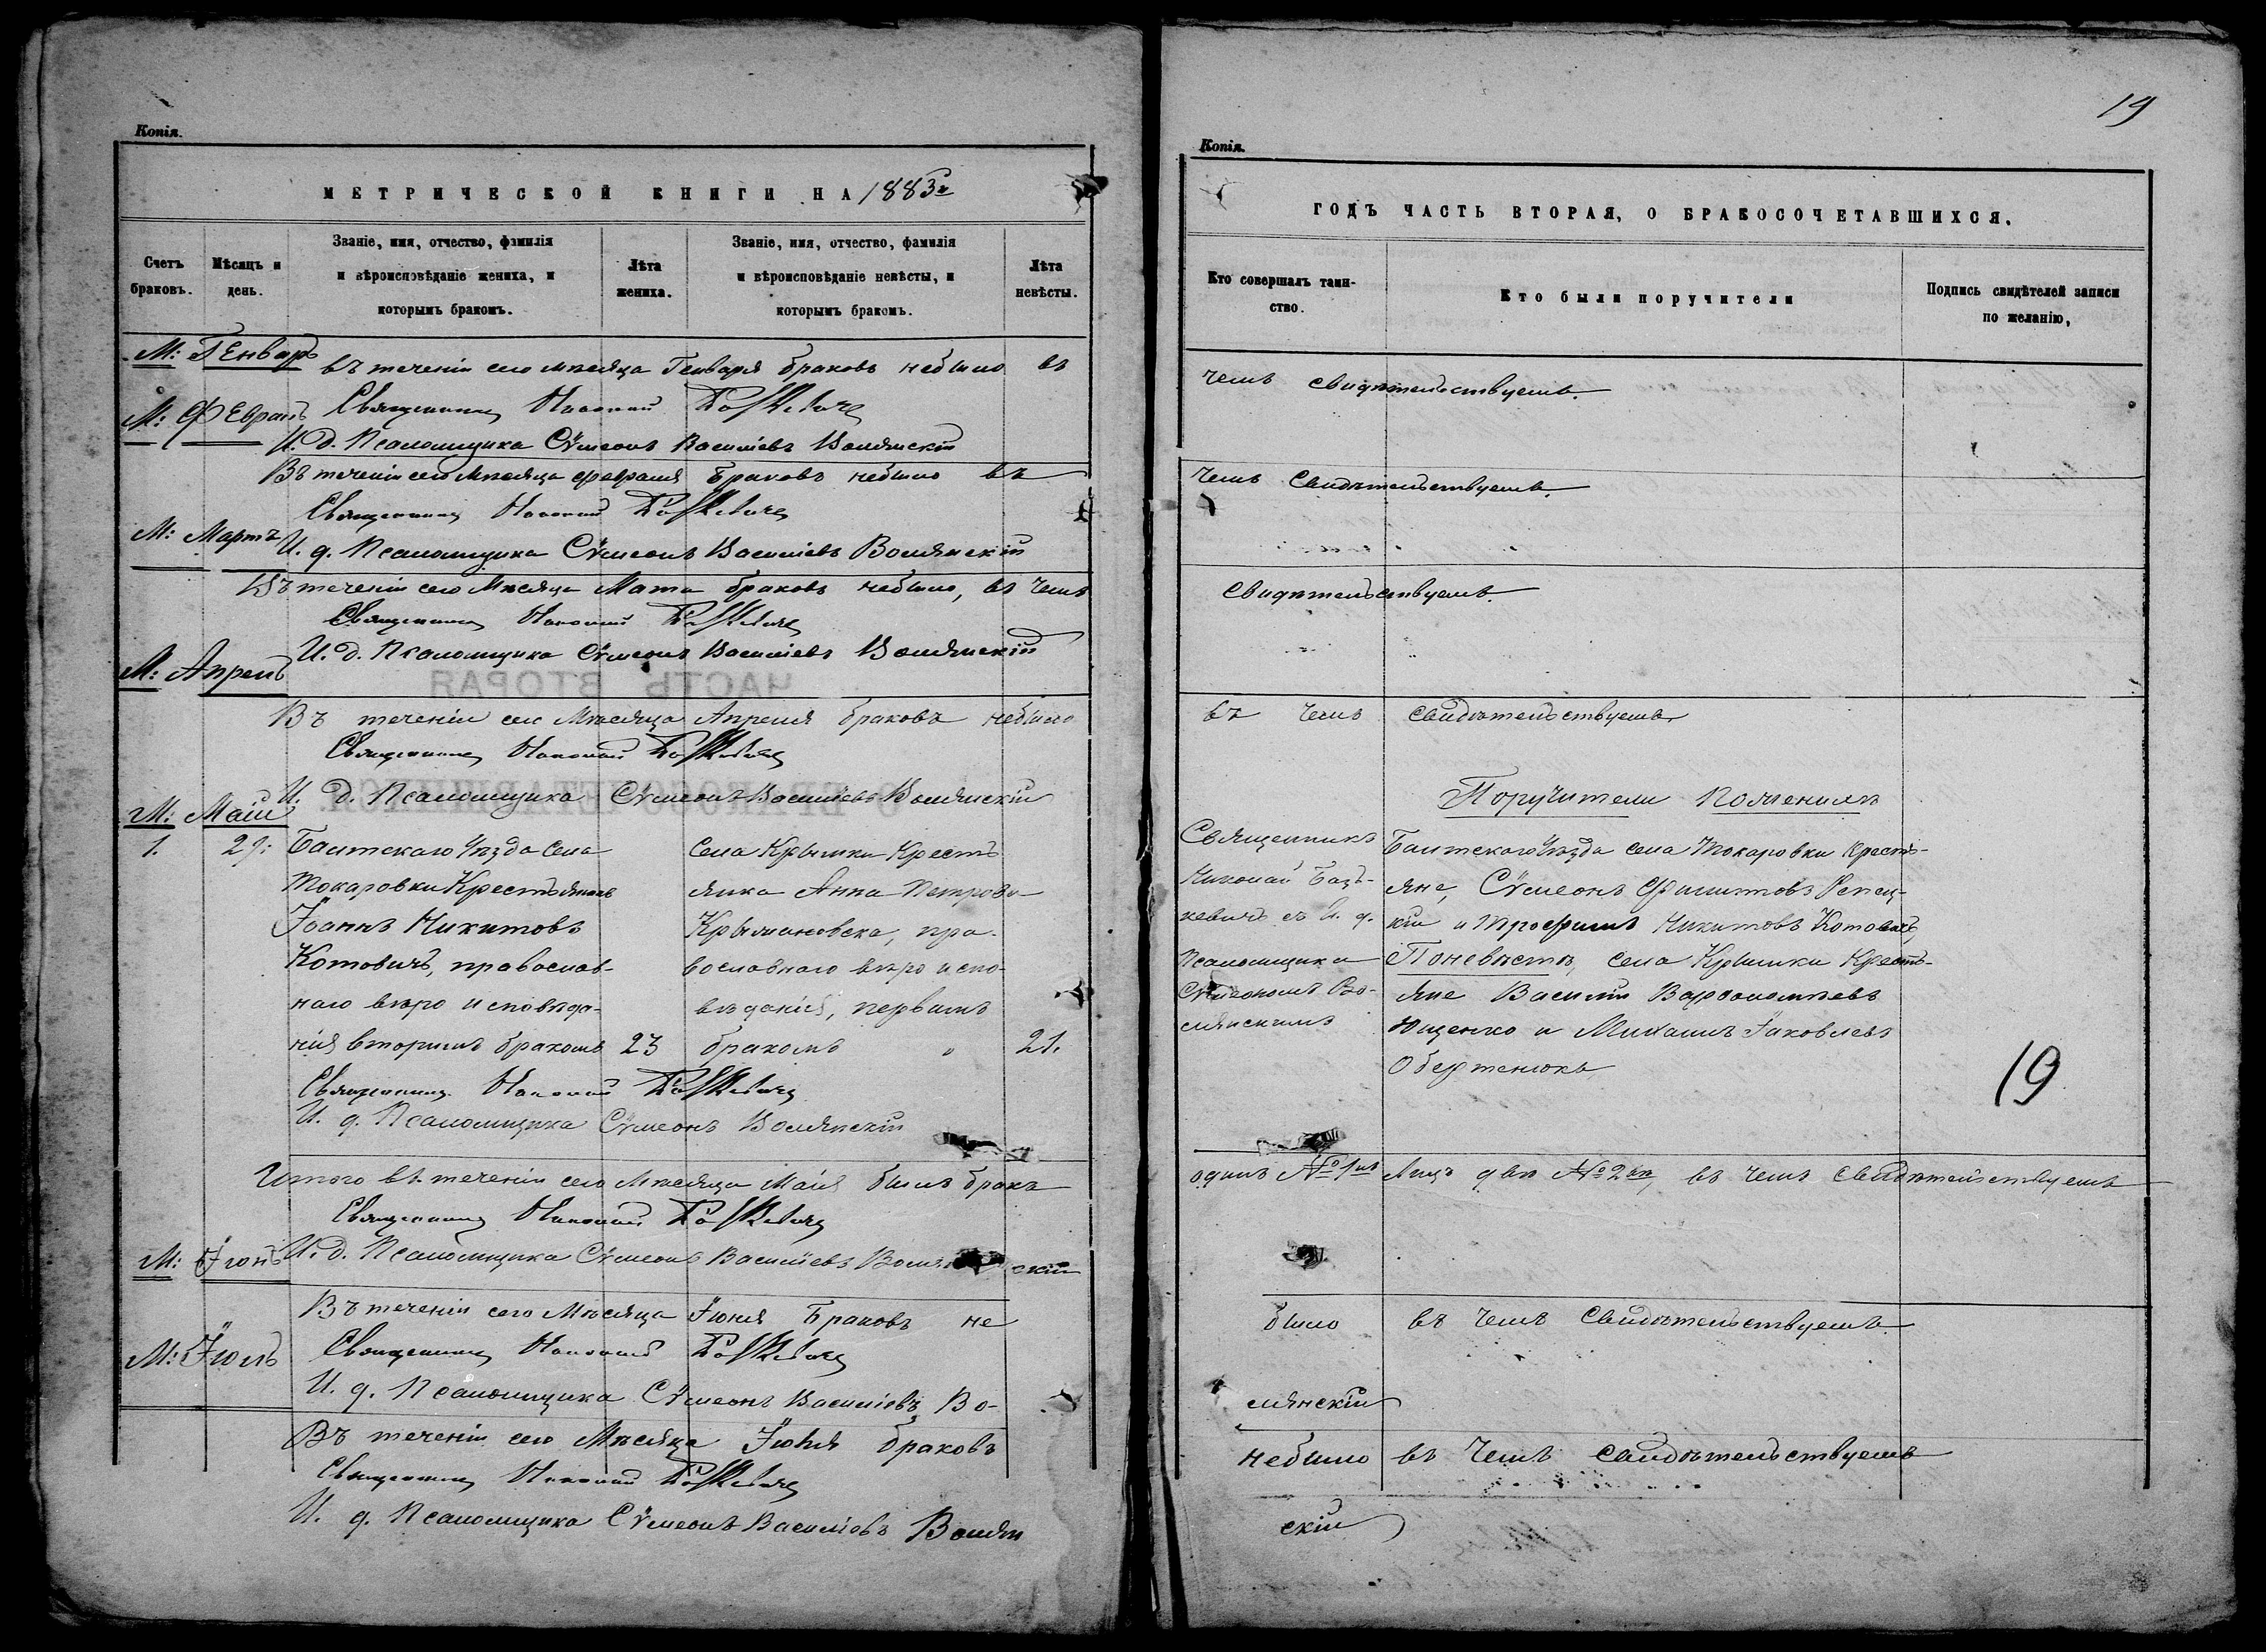 Копія.
МЕТРИЧЕСКОЙ КНИГИ НА 1883й
Счетъ браковъ.
Мѣсяцъ и день.
Званіе, имя, отчество, фамилія и вѣроисповѣданіе жениха, и которымъ бракомъ.
Лѣта жениха.
Званіе, имя, отчество, фамилія и вѣроисповѣданіе невѣсты, и которымъ бракомъ.
Лѣта невѣсты.
М: Генварь
въ теченіи сего мѣсяца Генваря браковъ небыло въ
Священникъ Николай
М: Февраль
И. д. Псаломщика Сѵмеонъ Василіевъ Волянскій
Въ теченіи сего Мѣсяца февраля браковъ небыло въ
Священникъ Николай
М: Мартъ
И. д. Псаломщика Сѵмеонъ Василіевъ Волянскій
Въ теченіи сего Мѣсяца Мата браковъ небыло, въ чемъ
Священникъ Николай
И. д. Псаломщика Сѵмеонъ Василіевъ Волянскій
М: Апрель
Въ теченіи сего Мѣсяца Апреля браковъ небыло
Священникъ Николай
И. д. Псаломщика Сѵмеонъ Василіевъ Волянскій
М: Маій
1. 29: Балтскаго Уѣзда Села
Токаровки Крестьянинъ
Іоаннъ Никитовъ
Котовичъ, православ-
наго вѣро исповѣда-
нія вторымъ бракомъ 23
Села Крымки Кресть-
янка Анна Петрова
Крымановска, пра-
вославнаго вѣро испо-
вѣданія, первымъ
бракомъ " 21.
Священникъ Николай
И. д. Псаломщика Сѵмеонъ Волянскій
Итого въ теченіи сего Мѣсяца Маія былъ бракъ
Священникъ Николай
И. д. Псаломщика Сѵмеонъ Василіевъ Волянскій
М: Іюнь
Въ теченіи сего Мѣсяца Іюня браковъ не
Священникъ Николай
М: Іюль
И. д. Псаломщика Сѵмеонъ Василіевъ Во-
Въ теченіи сего Мѣсяца Іюля браковъ
Священникъ Николай
И. д. Псаломщика Сѵмеонъ Василіевъ Волян
19
Копія.
ГОДЪ ЧАСТЬ ВТОРАЯ, О БРАКОСОЧЕТАВШИХСЯ.
Кто совершалъ таин-
ство.
Кто были поручители
Подпись свидѣтелей записи
по желанію,
чемъ свидѣтельствуемъ.
чемъ Свидѣтельствуемъ.
свидѣтельствуемъ.
въ чемъ свидѣтельствуемъ
Поручители По женихѣ
Священникъ
Николай Баць-
кевичъ съ И. д.
Псаломщика
Сѵмеономъ Во-
лянскимъ
Балтскаго Уѣзда села Токаровки кресть-
яне, Сѵмеонъ Филиповъ Репец-
кій и Трофимъ Никитовъ Котовичъ,
По невѣстѣ, села Крымки Кресть-
яне Василій Варфоломѣевъ
Ющенко и Михаилъ Іаковлевъ
19
одинъ №1нъ Лицъ два №2ва въ чемъ свидѣтельствуемъ
было въ чемъ свидѣтельствуемъ.
лянскій
небыло въ чемъ свидѣтельствуемъ
скій